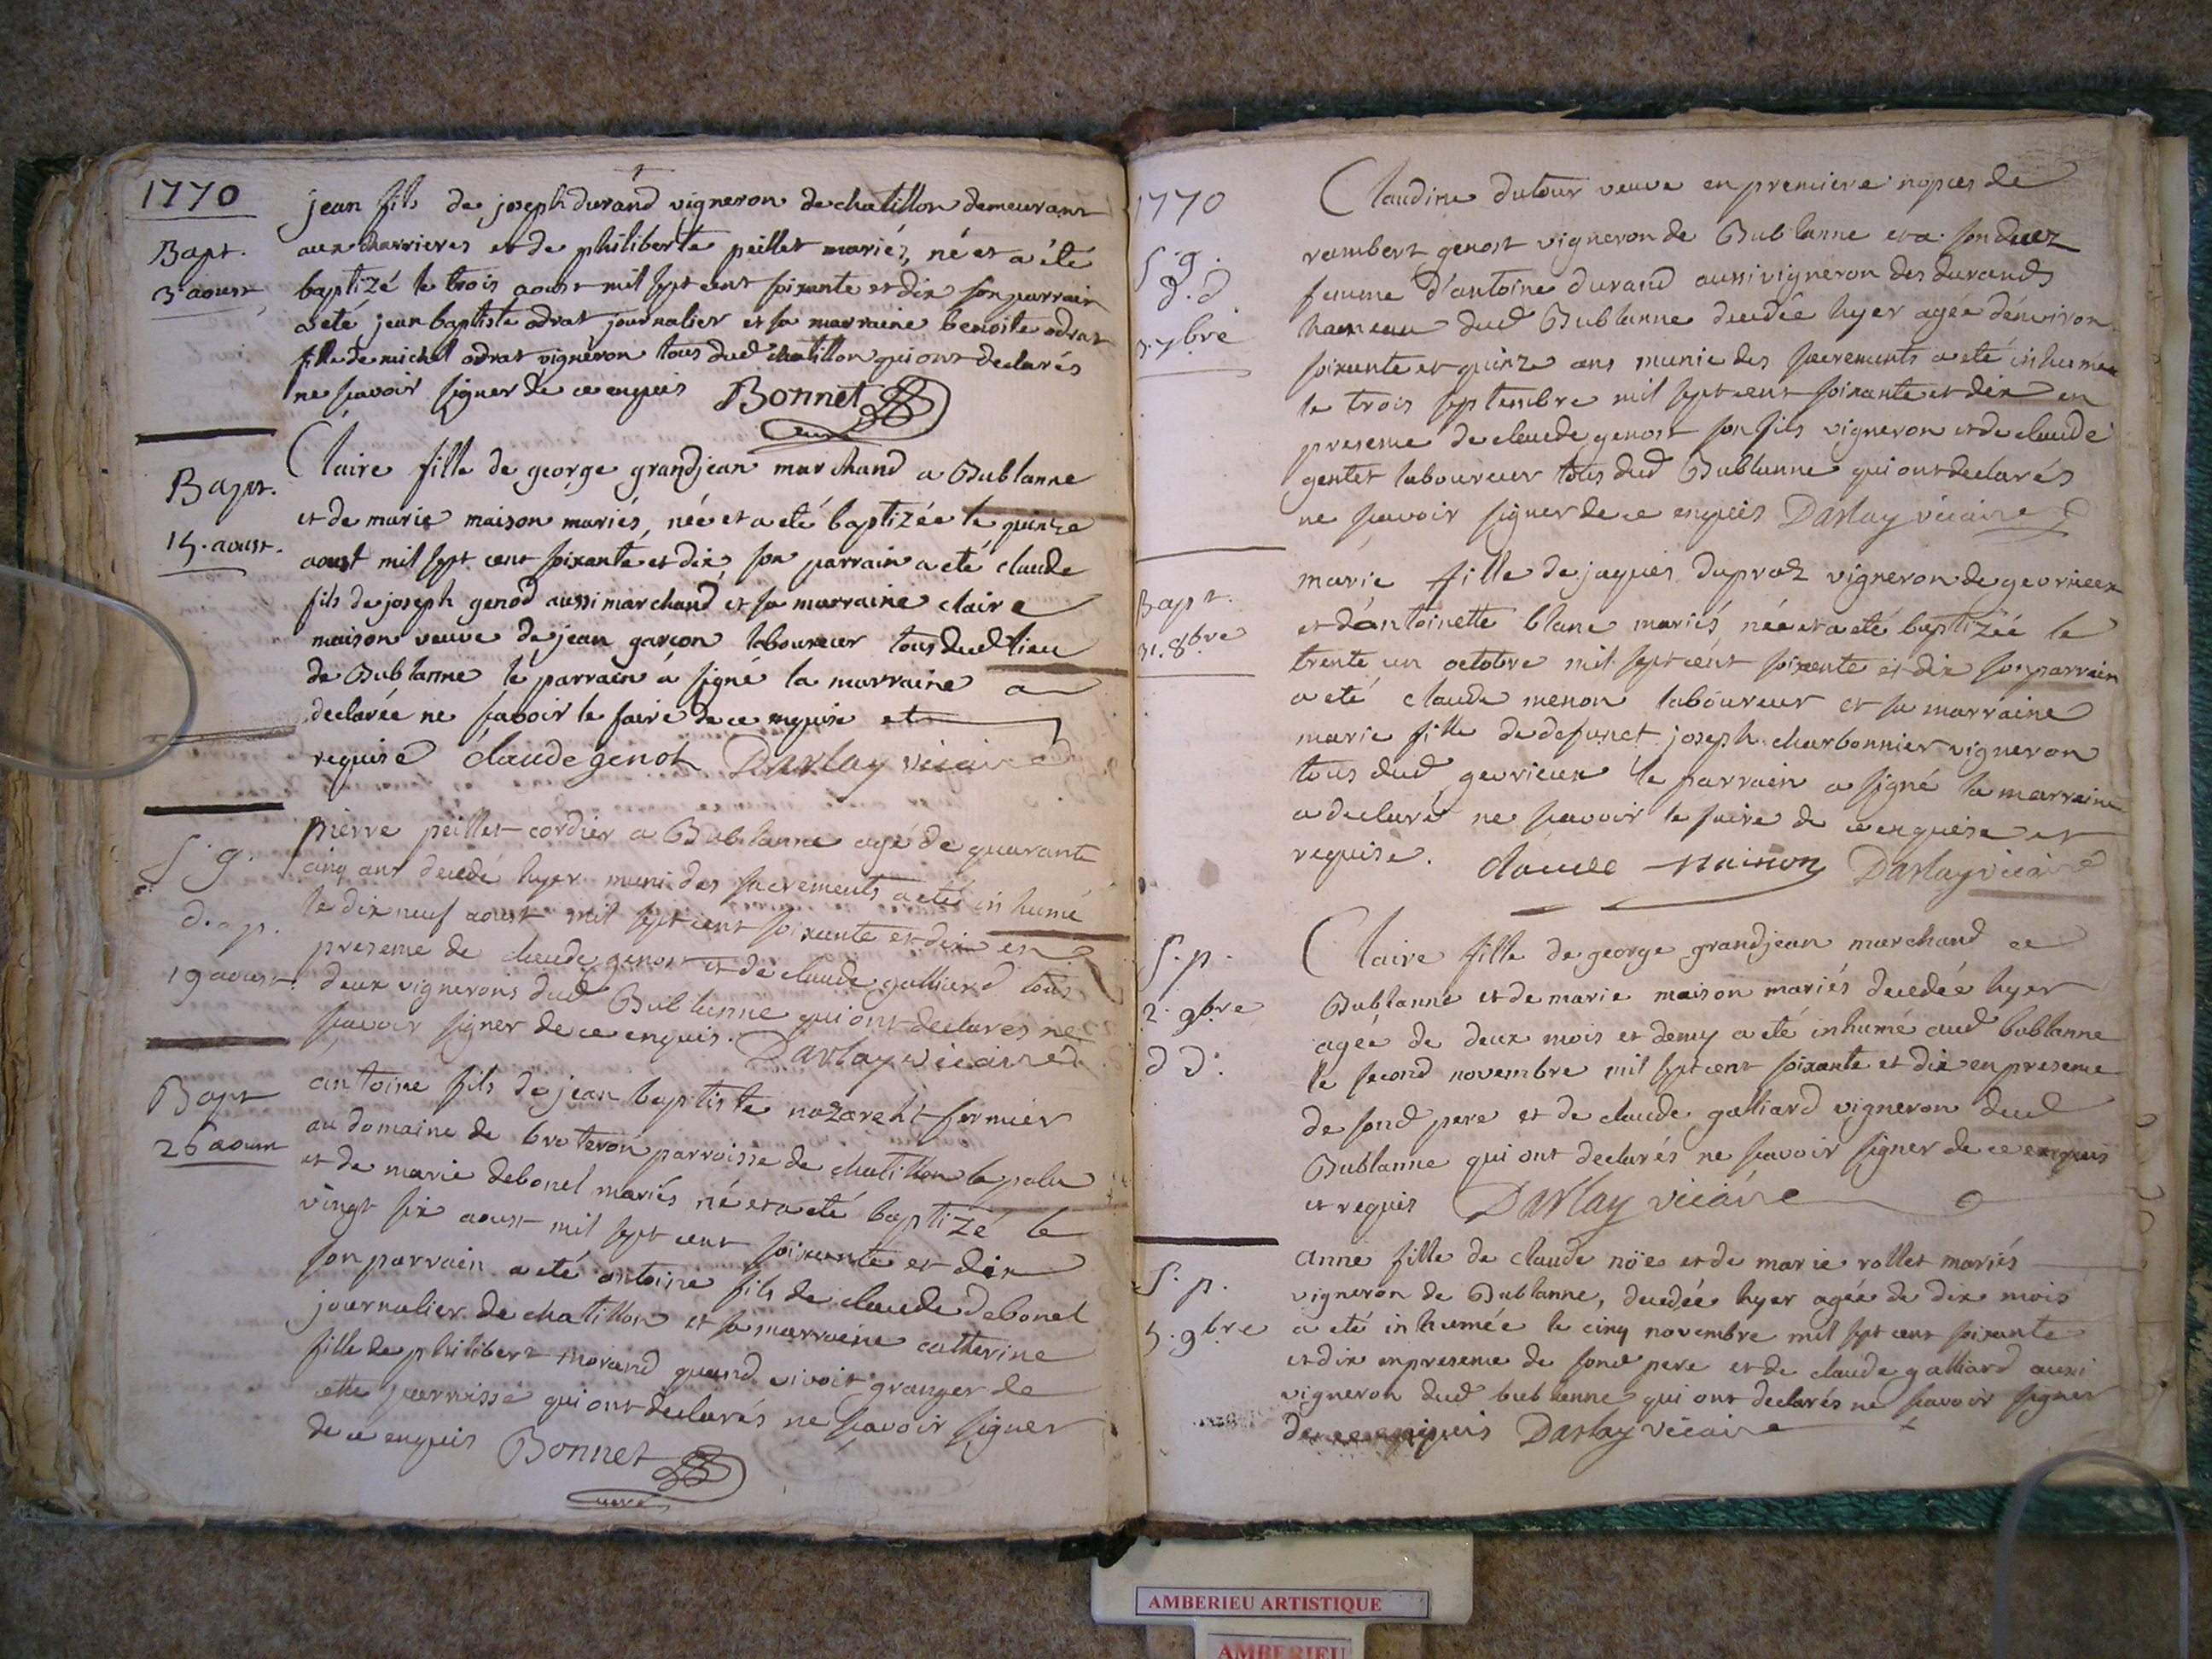 1770
jean fils de joseph durand vigneron de chatillon demeurant
Bapt.
aux charrieres et de philiberte peillet mariés, né et a été
3 aoust
baptizé le trois aoust mil sept cent soixante et dix son parrain
a eté jean baptiste odrat journalier et sa marraine benoite odrat
fille de michel odrat vigneron tous dud chatillon qui ont declarés
ne scavoir signer de ce enquis Bonnet
curé
Bapt.
Claire fille de george grandjean marchand a Bublanne
et de marie maison mariés, née et a eté baptizée le quinze
15. aoust.
aoust mil sept cent soixante et dix, son parrain a eté claude
fils de joseph genod aussi marchand et sa marraine claire
maison veuve de jean garçon laboureur tous dud lieu
de Bublanne le parrain a signé la marraine a
declarée ne scavoir le faire de ce enquise et
requise claude genot Darlay vicaire
S. g.
pierre peillet cordier a Bublanne agé de quarante
cinq ans decedé hyer muni des sacrements a eté inhumé
d. p.
le dix neuf aoust mil sept cent soixante et dix en
19 aoust
presense de claude genost et de claude galliard tous
deux vignerons dud Bublanne qui ont declarés ne
scavoir signer de ce enquis. Darlay vicaire
Bapt
antoine fils de jean baptiste nazareht fermier
26 aoust
au domaine de broteron parroisse de chatillon la palu
et de marie debonel mariés né et a eté baptizé le
vingt six aoust mil sept cent soixante et dix
son parrain a eté antoine fils de claude debonel
journalier de chatillon et sa marraine catherine
fille de philibert morand quand vivoit granger de
cette parroisse qui ont declarés ne scavoir signer
de ce enquis Bonnet
curé
1770
Claudine dutour veuve en premiere nopces de
S. g.
rambert genost vigneron de Bublanne et a son decez
d. d
femme d'antoine durand aussi vigneron des durands
3 7bre
hameau dud Bublanne decedée hyer agée d'environ
soixante et quinze ans munie des sacrements a eté inhumée
le trois septembre mil sept cent soixante et dix en
presense de claude genost son fils vigneron et de claude
gentet laboureur tous dud Bublanne qui ont declarés
ne scavoir signer de ce enquis Darlay vicaire
Bapt.
marie fille de jaques dupraz vigneron de gevrieux
31. 8bre
et d'antoinette blanc mariés née et a eté baptizée le
trente un octobre mil sept cent soixante et dix son parrain
a eté claude menon laboureur et sa marraine
marie fille de defunct joseph charbonnier vigneron
tous dud gevrieux le parrain a signé la marraine
a declaré ne scavoir le faire de ce enquise et
requise. claude Darlay vicaire
S. p.
Claire fille de george grandjean marchand a
2. 9bre
Bublanne et de marie maison mariés decedée hyer
d d.
agée de deux mois et demy a eté inhumé aud bublanne
le second novembre mil sept cent soixante et dix en presense
de sond pere et de claude galliard vigneron dud
Bublanne qui ont declarés ne scavoir signer de ce enquis
et requis Darlay vicaire
S. p.
anne fille de claude nöe et de marie rollet mariés
vigneron de Bublanne, decedée hyer agée de dix mois
5. 9bre
a eté inhumée le cinq novembre mil sept cent soixante
et dix en presense de sond pere et de claude galliard aussi
vigneron dud bublanne qui ont declarés ne scavoir signer
de ce enquis Darlay vicaire
AMBERIEU ARTISTIQUE
AMBERIEU